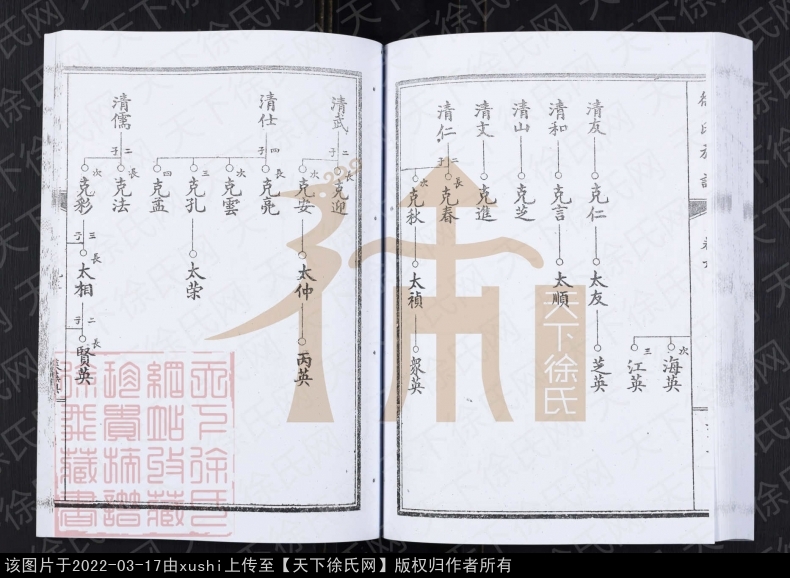 徐氏族譜
次
海英
三
江英
清友
克仁
太友
芝英
清和
克言
太順
清山
克芝
清文
克進
清仁
二子
長
克春
次
克秋
太禎
衆英
清武
二子
長
克迎
次
克安
太仲
丙英
清仕
四子
長
克亮
次
克雲
三
克孔
太荣
四
克孟
清儒
二子
長
克法
次
克彩
三子
長
太相
二子
長
賢英
天下徐氏
天下徐氏网
该图片于2022-03-17由xushi上传至【天下徐氏网】版权归作者所有